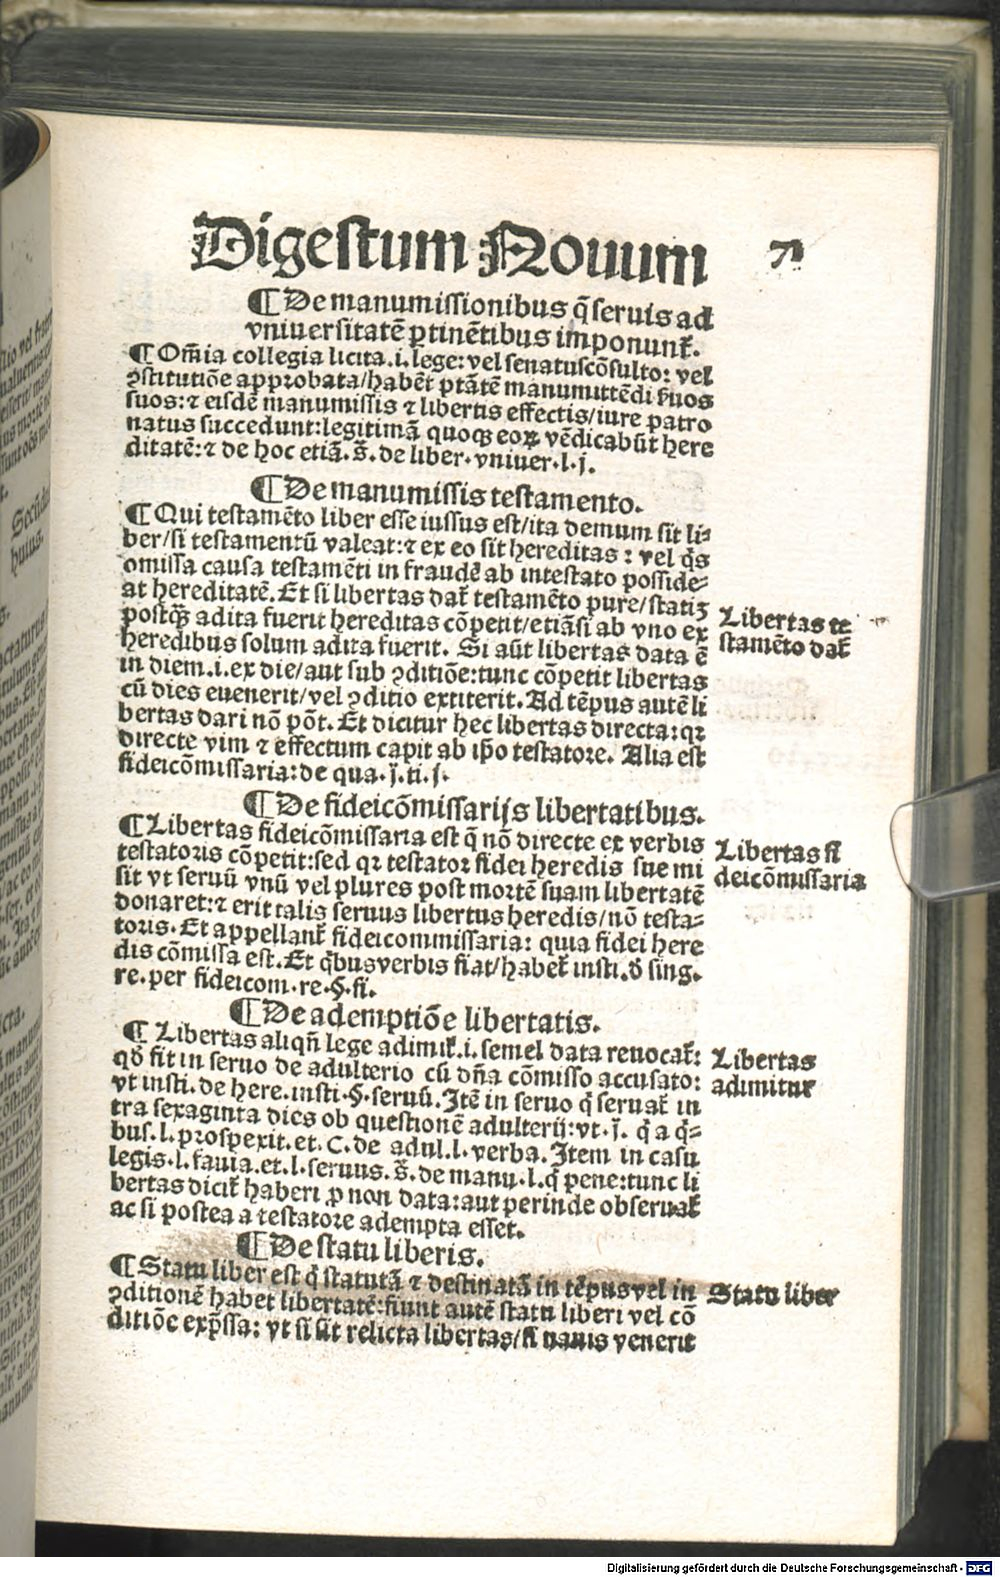 Digestum Nouum 71
¶ De manumissionibus q̃ seruis ad
vniuersitatē ꝑtinētibus imponunt̃.
¶ Om̄ia collegia licita .i. lege: vel senatuscōsulto: vel
ꝯstitutiōe approbata/habēt ptātē manumittēdi ẜuos
suos: ⁊ eisdē manumissis ⁊ libertis effectis/iure patro
natus succedunt: legitimā quoqꝫ eoꝝ vēdicabūt here
ditatē: ⁊ de hoc etiā. s̄. de liber. vniuer. l. j.
¶ De manumissis testamento.
¶ Qui testamēto liber esse iussus est/ita demum fit li⸗
ber/si testamentū valeat: ⁊ ex eo sit hereditas: vel q̇s
omissa causa testamēti in fraudē ab intestato posside⸗
at hereditatē. Et si libertas dat̃ testamēto pure/statiꝫ
postqꝫ̄ adita fuerit hereditas cōpetit/etiāsi ab vno ex
heredibus solum adita fuerit. Si aūt libertas data ē
in diem .i. ex die/aut sub ꝯditiōe: tunc cōpetit libertas
cū dies euenerit/vel ꝯditio extiterit. Ad tēpus autē li
bertas dari nō pōt. Et dicitur hec libertas directa: qꝛ
directe vim ⁊ effectum capit ab ip̄o testatore. Alia est
fideicōmissaria: de qua. j̄. ti. j.
Libertas te
stamēto dat̃
¶ De fideicōmissarijs libertatibus.
¶ Libertas fideicōmissaria est q̄ nō directe ex verbis
testatoris cōpetit: sed qꝛ testator fidei heredis sue mi
sit vt seruū vnū vel plures post mortē suam libertatē
donaret: ⁊ erit talis seruus libertus heredis/nō testa⸗
toris. Et appellant̃ fideicommissaria: quia fidei here
dis cōmissa est. Et q̇busverbis fiat/habet̃ insti. ð sing.
re. per fideicom. re. §. fi.
Libertas fi
deicōmissaria
¶ De ademptiōe libertatis.
¶ Libertas aliqn̄ lege adimit̃ .i. semel data reuocat̃:
qð fit in seruo de adulterio cū dn̄a cōmisso accusato:
vt insti. de here. insti. §. seruū. Itē in seruo q̇ seruat̃ in
tra sexaginta dies ob questionē adulterij: vt. j̄. q̇ a q̇⸗
bus. l. prospexit. et. C. de adul. l. verba. Item in casu
legis. l. fauia. et. l. seruus. s̄. de manu. l. q̇ pene: tunc li
bertas dicit̃ haberi ꝓ non data: aut perinde obseruat̃
ac si postea a testatore adempta esset.
Libertas
adimitur
¶ De statu liberis.
¶ Statu liber est q̇ statutā ⁊ destinatā in tēpus vel in
ꝯditionē habet libertatē: fiunt autē statu liberi vel cō
ditiōe exp̄ssa: vt si sit relicta libertas/si nauis venerit
Statu liber
Digitalisierung gefördert durch die Deutsche Forschungsgemeinschaft - DFG